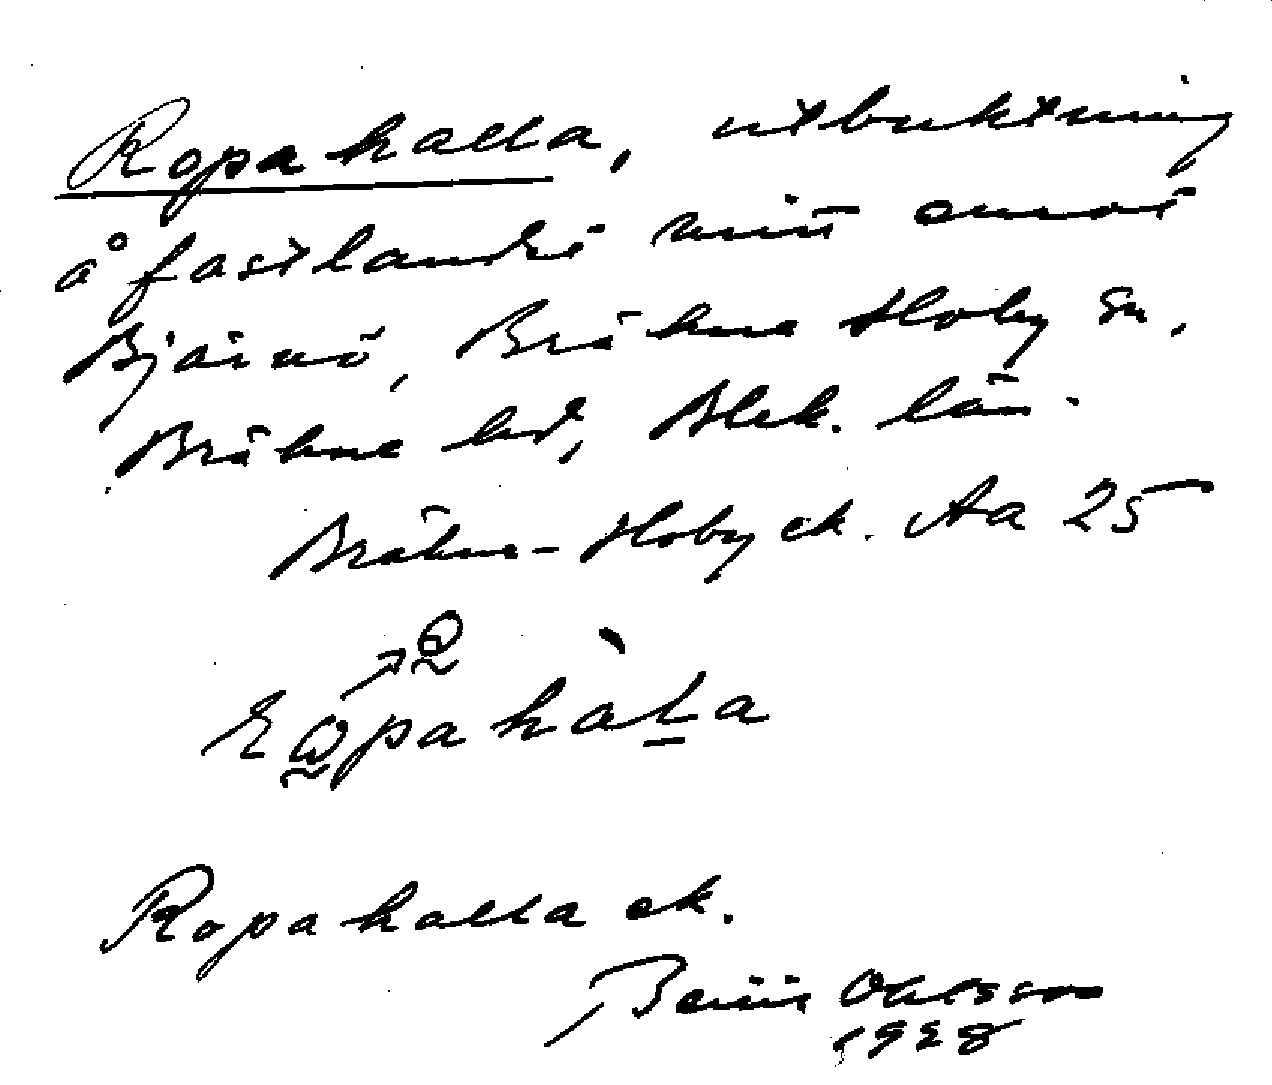 Ropahalla, utbuktning
å fastlandet mitt emot
Bjärnö, Bräkne Hoby sn,
Bräkne hd, Blek. län.
Bräkne-Hoby ek. Aa 25
Ropahalla ek.
Bertil Ohlsson
1928